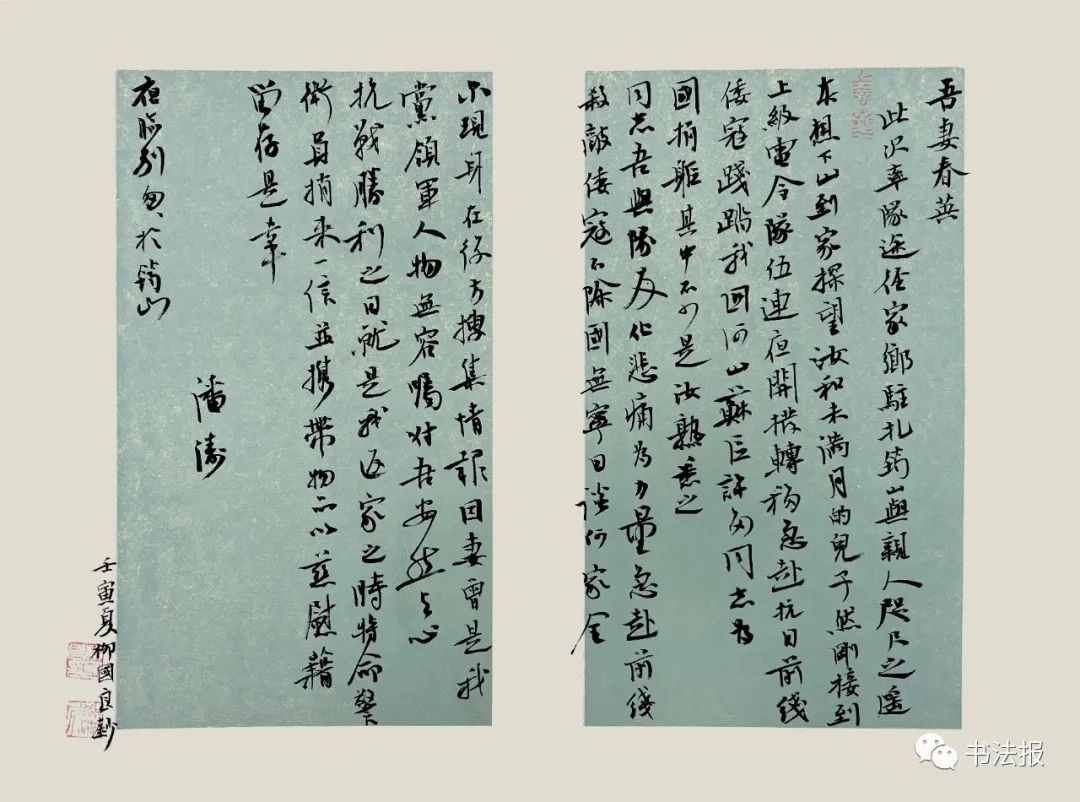 吾妻春英
此次率隊途径家鄉駐扎鎢山與親人咫尺之遥
本想下山到家探望汝和未满月的兒子然剛接到
上級電令隊伍連夜開撥轉移急赴抗日前线
倭寇踐踏我国河山蘇區許多同志為
國捐軀其中不少是汝熟悉之
同志吾與勝友化悲痛為力量急赴前线
殺敵倭寇不除國無寧日談何家全
不現身在後方搜集情報因妻曾是我
黨領軍人物無容囑咐吾安然与心
抗戰勝利之日就是我返家之時特命警
衛員捎来一信並携帶物品以慈慰籍
留存是幸
潘濤
夜临别匆匆於鎢山
壬寅夏柳國良鈔
书法报